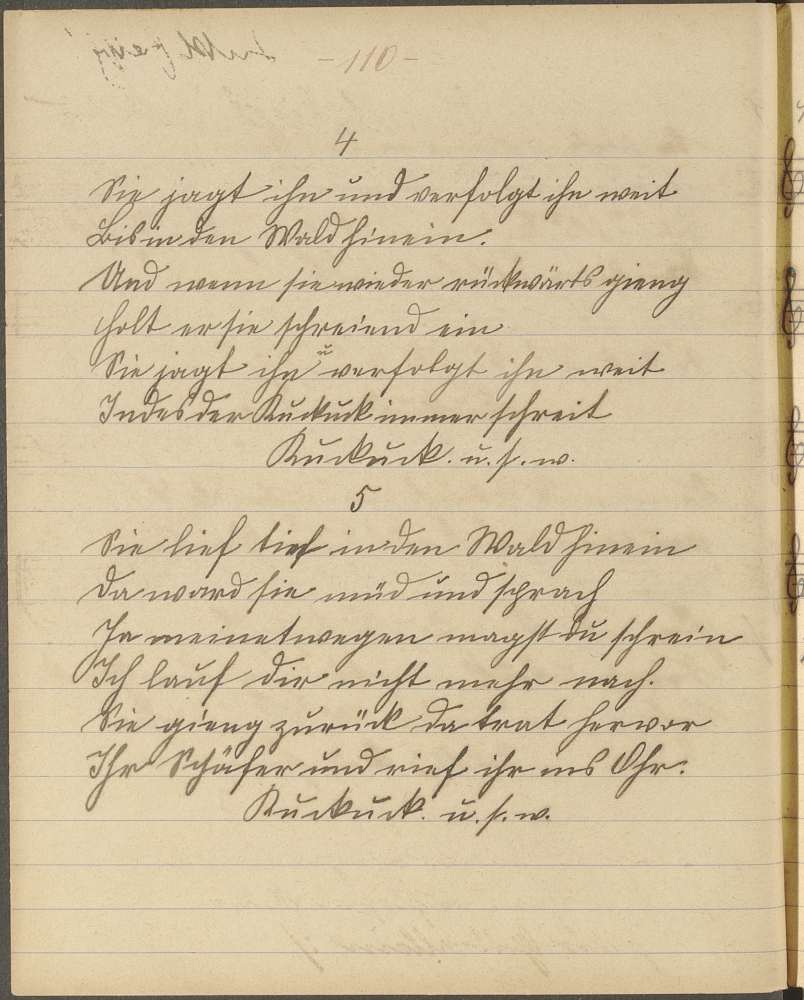 - 110 -
4
Sie jagt ihn und verfolgt ihn weit
Bis in den Wald hinein.
Und wenn sie wieder rückwärts gieng
Holt er sie schreiend ein
Sie jagt ihn u verfolgt ihn weit
Indes der Kuckuck immer schreit
Kuckuck. u. s. w.
5
Sie lief tief in den Wald hinein
Da ward sie müd und sprach
Ja meinetwegen magst du schrein
Ich lauf dir nicht mehr nach.
Sie gieng zurück da trat hervor
Ihr Schäfer und rief ihr ins Ohr:
Kuckuck. u. s. w.